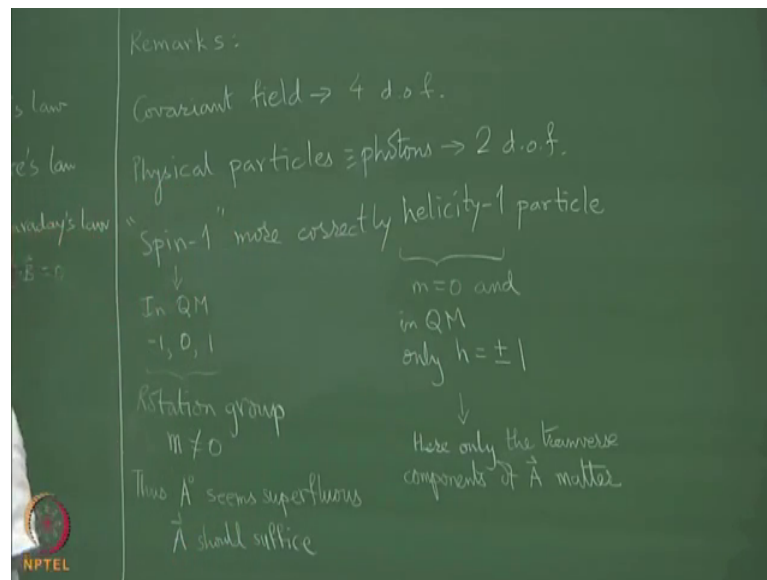 s law
e's law
araday's law
B⃗ = 0
Remarks:
Covariant field → 4 d.o.f.
Physical particles ≡ photons → 2 d.o.f.
"Spin-1" more correctly helicity-1 particle
↓
In QM
-1, 0, 1
Rotation group
m ≠ 0
Thus A⁰ seems superfluous
A⃗ should suffice
m=0 and
in QM
only h = ± 1
↓
Here only the tranverse
components of A⃗ matter
NPTEL